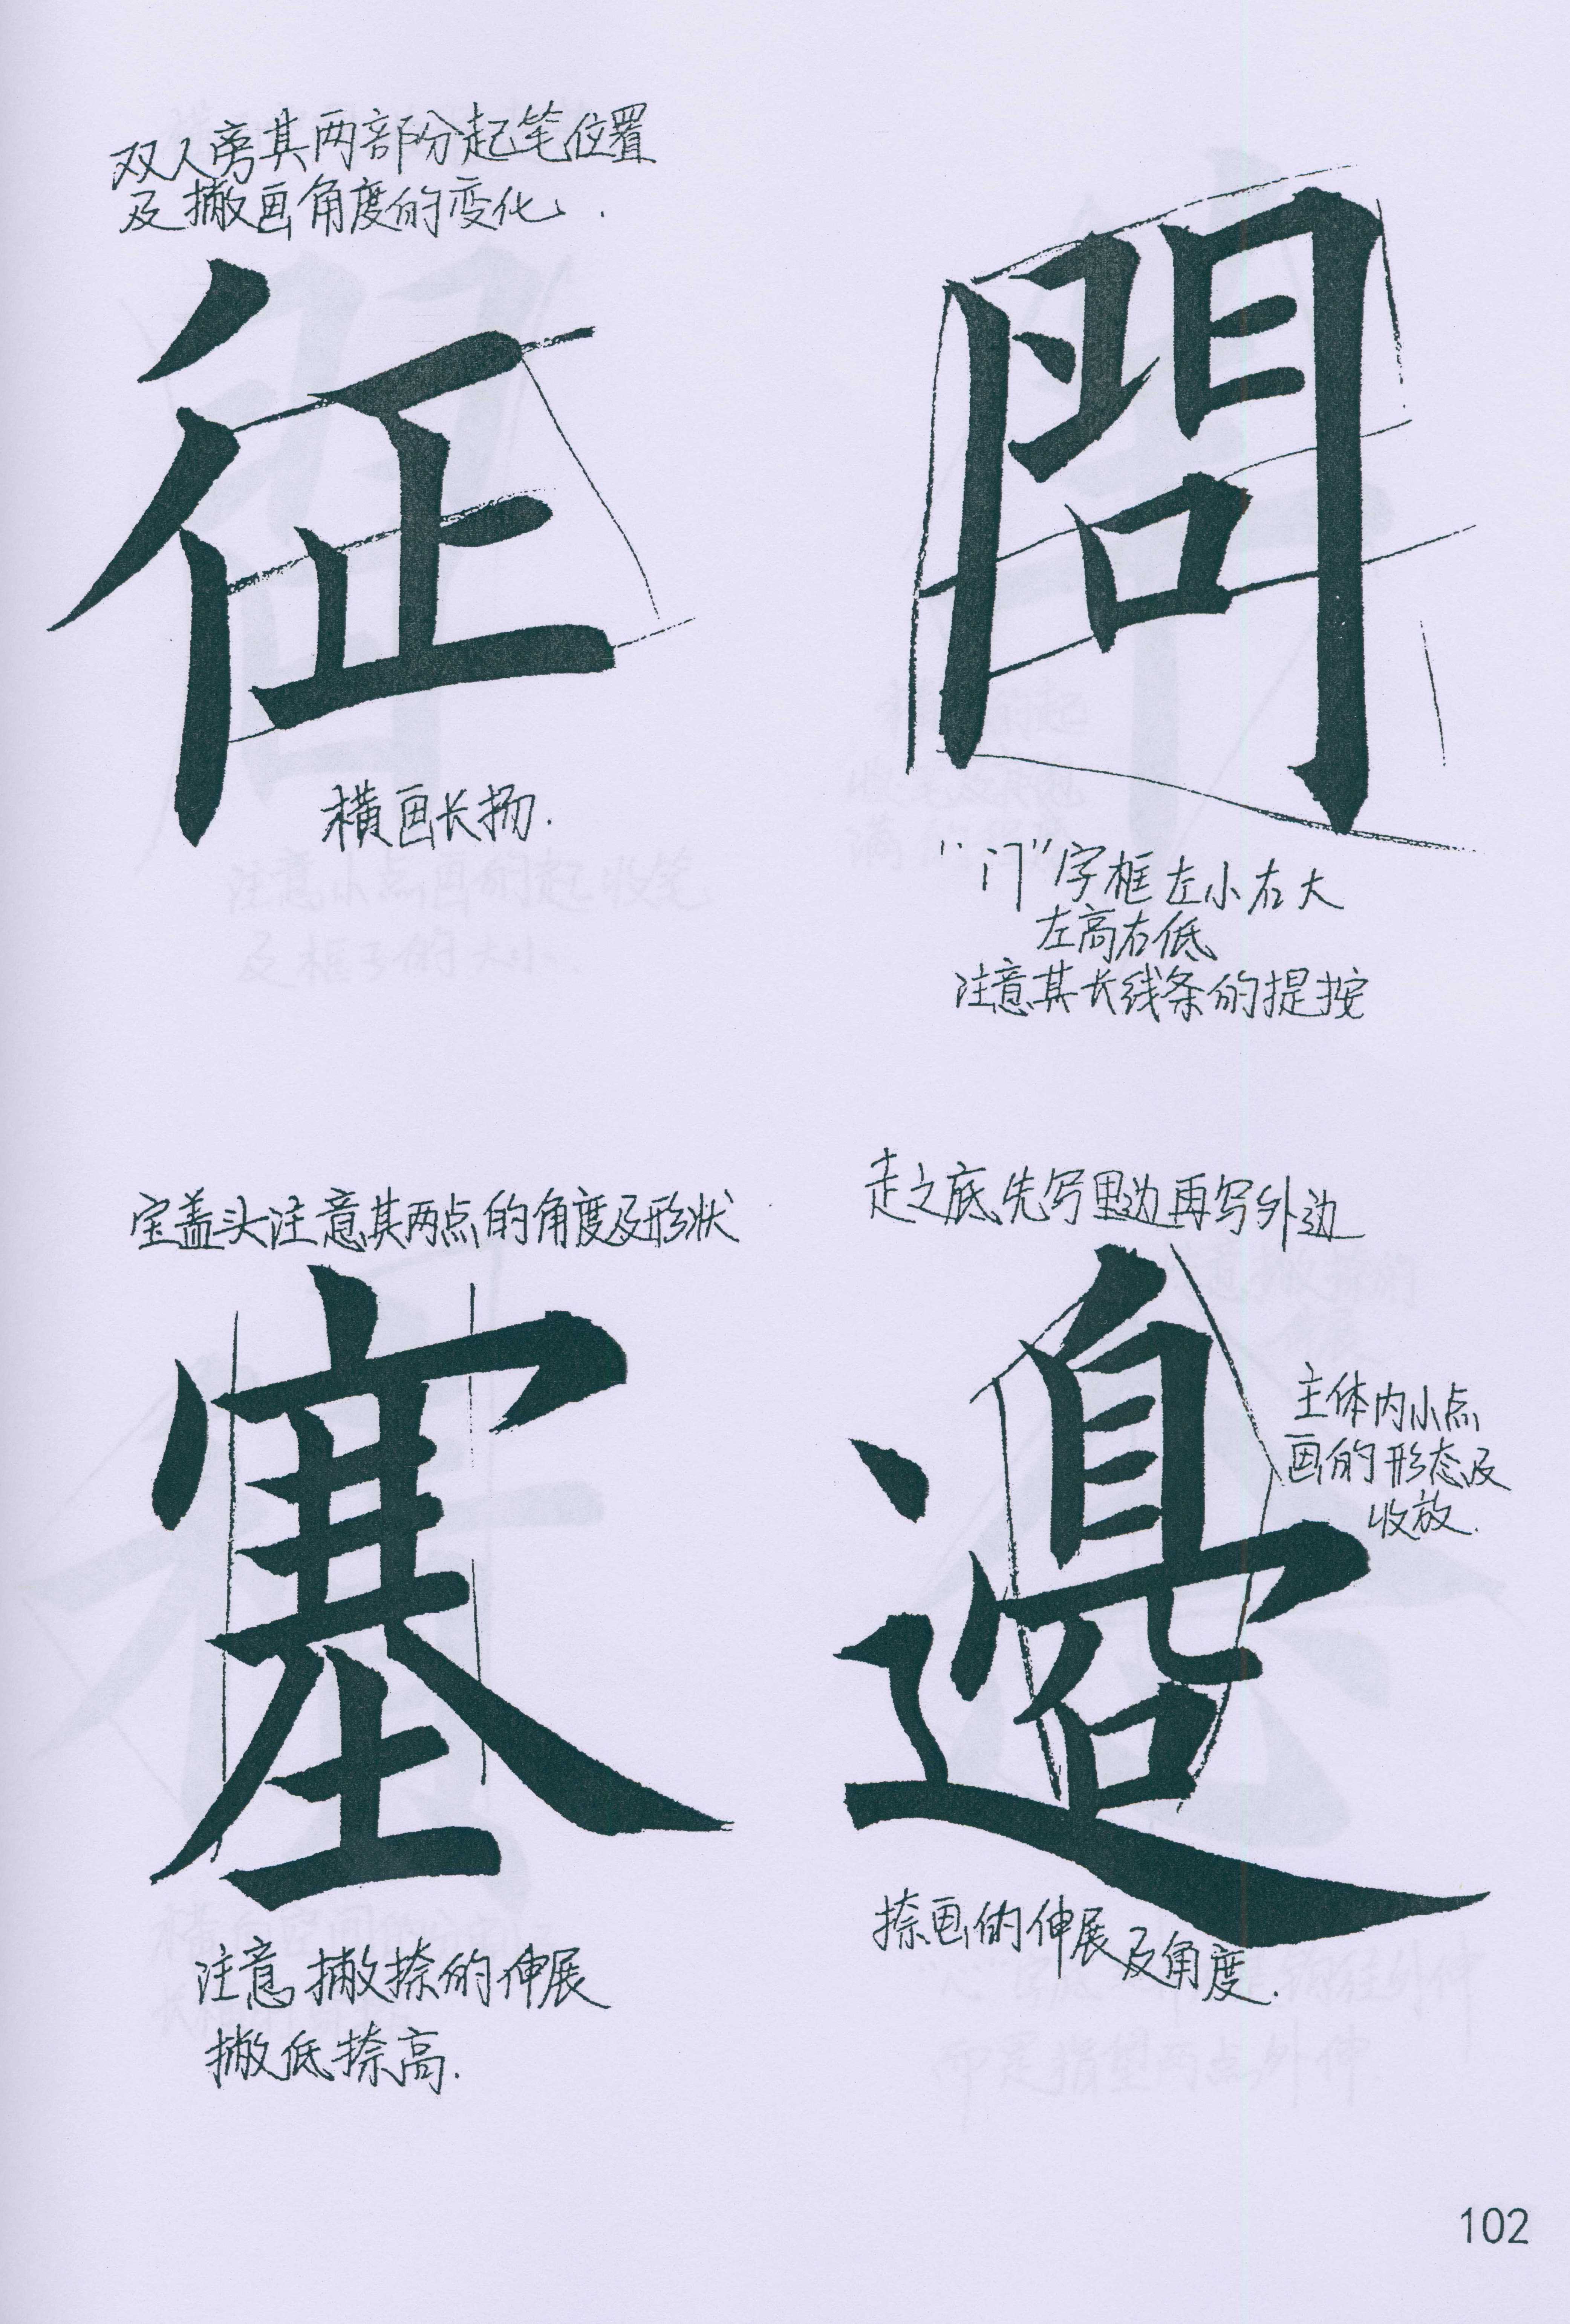 双人旁其两部分起笔位置
及撇画角度的变化.
征
横画长扬.
問
"门"字框左小右大
左高右低
注意其长线条的提按
宝盖头注意其两点的角度及形状
塞
注意撇捺的伸展
撇低捺高.
走之底先写里边再写外边
邉
主体内小点
画的形态及
收放.
捺画的伸展及角度.
102